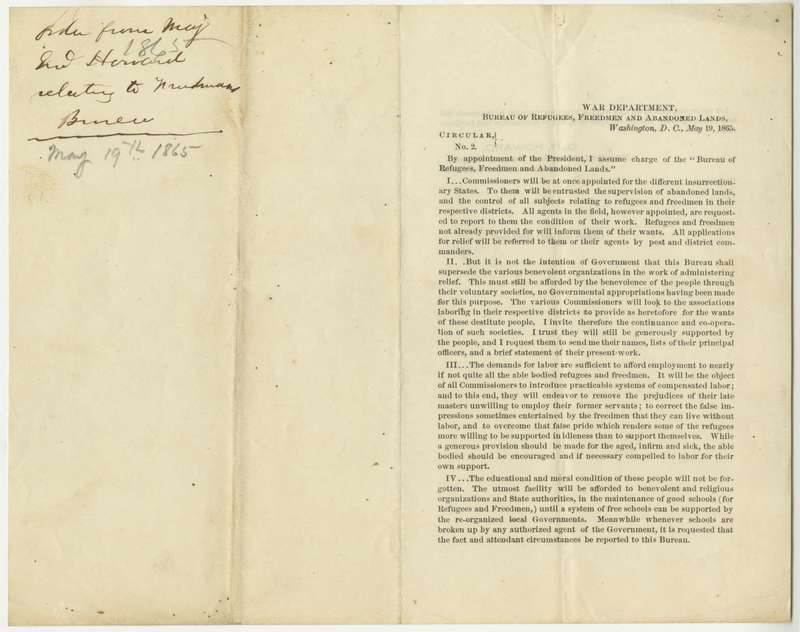 Order from Maj
1865
Gnl Howard
relating to Freedmans
Bureau
May 19th 1865
WAR DEPARTMENT,
BUREAU OF REFUGEES, FREEDMEN AND ABANDONED LANDS,
Washington, D. C., May 19, 1865.
CIRCULAR,
No. 2.
By appointment of the President, I assume charge of the "Bureau of
Refugees, Freedmen and Abandoned Lands."
I...Commissioners will be at once appointed for the different insurrection-
ary States. To them will be entrusted the supervision of abandoned lands,
and the control of all subjects relating to refugees and freedmen in their
respective districts. All agents in the field, however appointed, are request-
ed to report to them the condition of their work. Refugees and freedmen
not already provided for will inform them of their wants. All applications
for relief will be referred to them or their agents by post and district com-
manders.
II. .But it is not the intention of Government that this Bureau shall
supersede the various benevolent organizations in the work of administering
relief. This must still be afforded by the benevolence of the people through
their voluntary societies, no Governmental appropriations having been made
for this purpose. The various Commissioners will look to the associations
laboring in their respective districts to provide as heretofore for the wants
of these destitute people. I invite therefore the continuance and co-opera-
tion of such societies. I trust they will still be generously supported by
the people, and I request them to send me their names, lists of their principal
officers, and a brief statement of their present work.
III...The demands for labor are sufficient to afford employment to nearly
if not quite all the able bodied refugees and freedmen. It will be the object
of all Commissioners to introduce practicable systems of compensated labor;
and to this end, they will endeavor to remove the prejudices of their late
masters unwilling to employ their former servants; to correct the false im-
pressions sometimes entertained by the freedmen that they can live without
labor, and to overcome that false pride which renders some of the refugees
more willing to be supported in idleness than to support themselves. While
a generous provision should be made for the aged, infirm and sick, the able
bodied should be encouraged and if necessary compelled to labor for their
own support.
IV...The educational and moral condition of these people will not be for-
gotten. The utmost facility will be afforded to benevolent and religious
organizations and State authorities, in the maintenance of good schools (for
Refugees and Freedmen,) until a system of free schools can be supported by
the re-organized local Governments. Meanwhile whenever schools are
broken up by any authorized agent of the Government, it is requested that
the fact and attendant circumstances be reported to this Bureau.